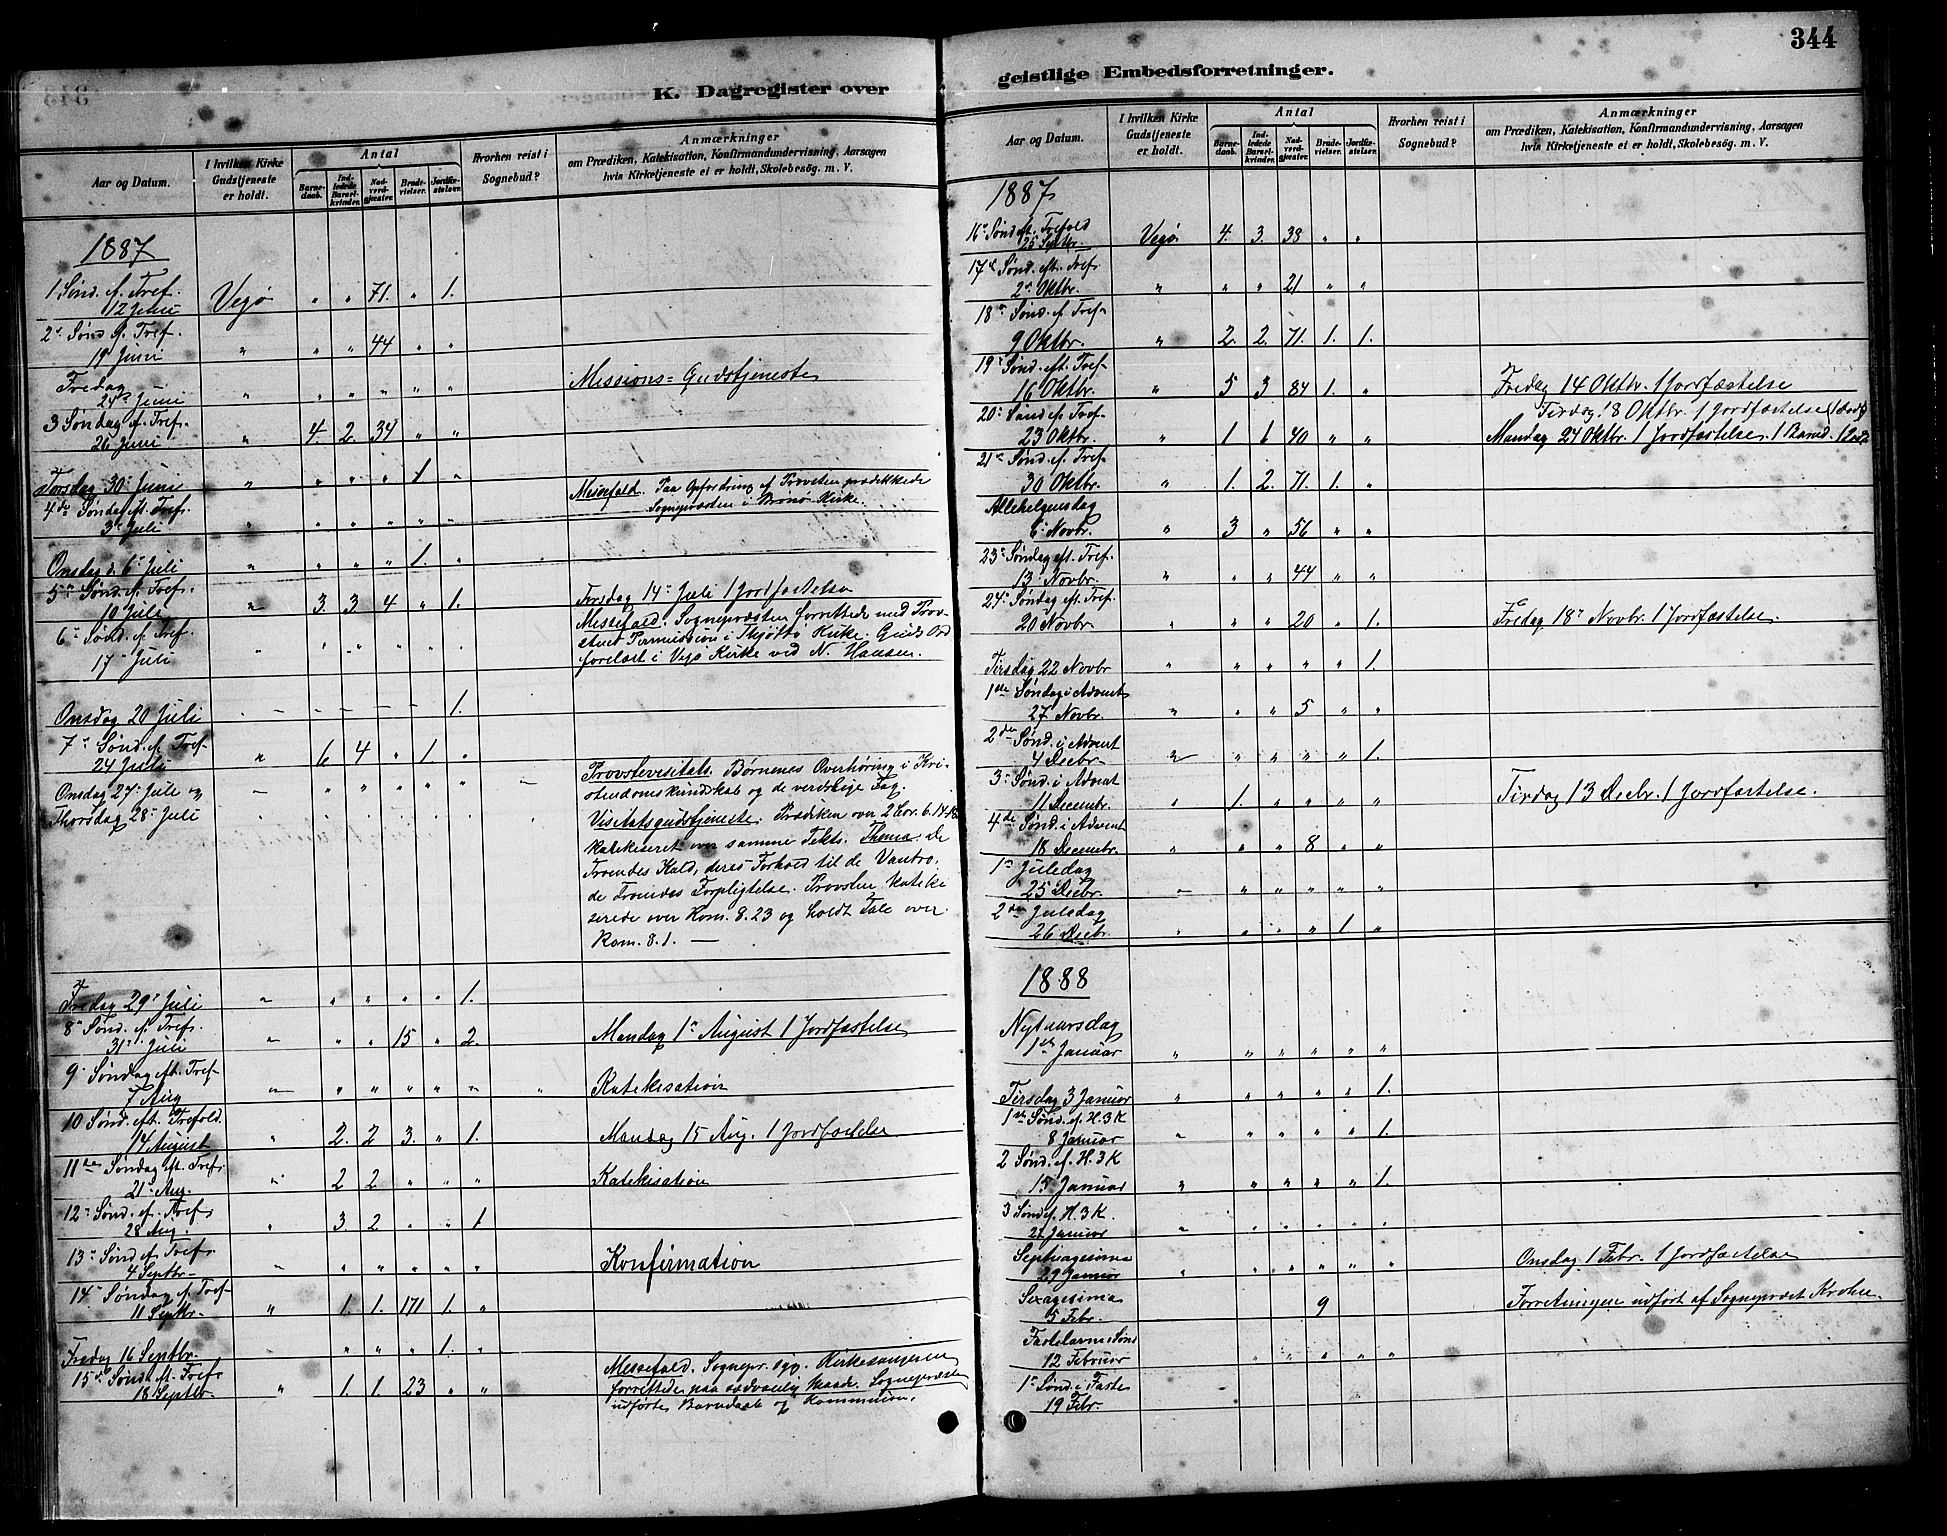 K. Dagregister over
Aar og Datum.
I hvilken Kirke Gudstjeneste er holdt.
Antal
Barnedaab.
Indledede Barselkvinder.
Nadverdgjester.
Brudevielser.
Jordfæstelser.
Hvorhen reist i Sognebud?
Anmærkninger
om Prædiken, Katekisation, Konfirmandundervisning, Aarsagen
hvis Kirketjeneste ei er holdt, Skolebesøg. m. V.
1887
1 Sønd. f. Tref.
12 Juni Vegø " " 71. " 1.
2. Sønd f. Tref.
19 Juni " " " 44 " "
Fredag
24 Juni " " " " " " Missions=Gudstjeneste
3 Søndag f. Tref.
26 Juni " 4. 2. 34 " "
Torsdag 30 Juni " " " " 1 "
4de Søndag eft. Tref. Messefald. Paa Opfordring af Provsten prædikede
3 Juli " " " " " " Sognepræsten i Brønø Kirke.
Onsdag 6 Juli " " " " 1. "
5 Sønd. f. Tref. Torsdag 14 Juli 1 Jordfæstelse
10 Juli " 3. 3 4 " 1.
6 Sønd. f. Tref. Messefald. Sognepræsten forrettede med Prov-
17 Juli " " " " " " stens Permission i Thjøttø Kirke. Guds Ord
forelæst i Vegø Kirke ved N. Hansen.
Onsdag 20 Juli " " " " " 1.
7 Sønd. f. Tref.
24 Juli " 6 4 " 1 "
Onsdag 27 Juli og Provstevisitats. Børnenes Overhøring i Kri-
Thorsdag 28 Juli stendomskundskab og de verdslige Fag.
Visitatsgudstjeneste. Prædiken over 2 Cor. 6.14-18
katekiseret over samme Tekst. Thema: De
Troendes Kald, deres Forhold til de Vantro,
de Troendes Forpligtelse. Provsten kateki
serede over Rom. 8.23 og holdt Tale over
Rom. 8.1. —
Fredag 29 Juli " " " " " 1.
8 Sønd. f. Tref.
31 Juli " " " 15 " 2. Mandag 1 August 1 Jordfæstelse
9 Søndag eft. Tref
7 Aug " " " " " " Katekisation
10 Sønd. eft. Trefold.
14 August " 2. 2 3. " 1. Mandag 15 Aug. 1 Jordfæstelse
11te Søndag eft. Tref.
21 Aug. " 2 2 " " " Katekisation
12 Sønd. f. Tref.
28 Aug. " 3 2 " " 1
13 Sønd f. Tref.
4 Septbr " " " " " " Konfirmation
14 Søndag f. Tref
11 Septbr. " 1. 1. 171 1. "
Fredag 16 Septbr. " " " " 1. "
15 Sønd. f. Tref. Messefald. Sognepr. syg. Kirkesangeren
18 Septbr " 1. 1. 23 " " forrettede paa sædvanlig Maade. Sognepræsten
udførte Barnedaab og Kommunion.
344
geistlige Embedsforretninger.
Aar og Datum.
I hvilken Kirke Gudstjeneste er holdt.
Antal
Barnedaab.
Indledede Barselkvinder.
Nadverdgjester.
Brudevielser.
Jordfæstelser.
Hvorhen reist i Sognebud?
Anmærkninger
om Prædiken, Katekisation, Konfirmandundervisning, Aarsagen
hvis Kirketjeneste ei er holdt, Skolebesøg m. V.
1887
16 Sønd eft. Trefold
25 Septbr. Vegø 4. 3. 38 " "
17 Sønd. eft. Tref
2 Oktbr. " " " 21 " "
18 Sønd f. Tref
9 Oktbr. " 2. 2. 71. 1. 1.
19 Sønd. eft. Tref
16 Oktbr. " 5 3 84 1. " Fredag 14 Oktbr. 1 Jordfæstelse
20 Sønd f. Tref Tirdag 18 Oktbr. 1 Jordfæstelse
23 Oktbr. " 1. 1 40 " " Mandag 24 Oktbr. 1 Jordfæstelse, 1 Barned.
21 Sønd. f. Tref
30 Oktbr. " 1. 2. 71. 1. "
Allehelgensdag
6 Novbr. " 3 " 56 " "
23 Søndag eft. Tref.
13 Novbr. " " " 44 " "
24 Søndag eft. Tref.
20 Novbr " " " 20 " 1. Fredag 18 Novbr. 1 Jordfæstelse.
Tirsdag 22 Novbr " " " " " 1.
1ste Søndag i Advent
27 Novbr. " " " 5 " "
2den Sønd. i Advent
4 Decbr. " " " " " 1.
3 Sønd. i Advent
11 Decembr. " 1. " " " " Tirdag 13 Decbr. 1 Jordfæstelse.
4de Sønd. i Advent
18 Decembr. " " " 8 " "
1 Juledag
25 Decbr. " " " " " "
2den Juledag
26 Decbr. " " " " 1 "
1888
Nytaarsdag
1ste Januar " " " " " "
Tirsdag 3 Januar " " " " " 1.
1ste Sønd. f. H. 3 K
8 Januar " " " " " 1.
2 Sønd. f. H. 3 K
15 Januar " " " " " 1.
3 Sønd f. H. 3 K.
22 Januar " " " " " "
Septuagesima
29 Januar " " " " " " Onsdag 1 Febr. 1 Jordfæstelse
Sexagesima
5 Febr. 9 Forretningen udført af Sognepræst Krohn.
Fastelavns Sønd
12 Februar " " " " "
1 Sønd i Faste
19 Febr.